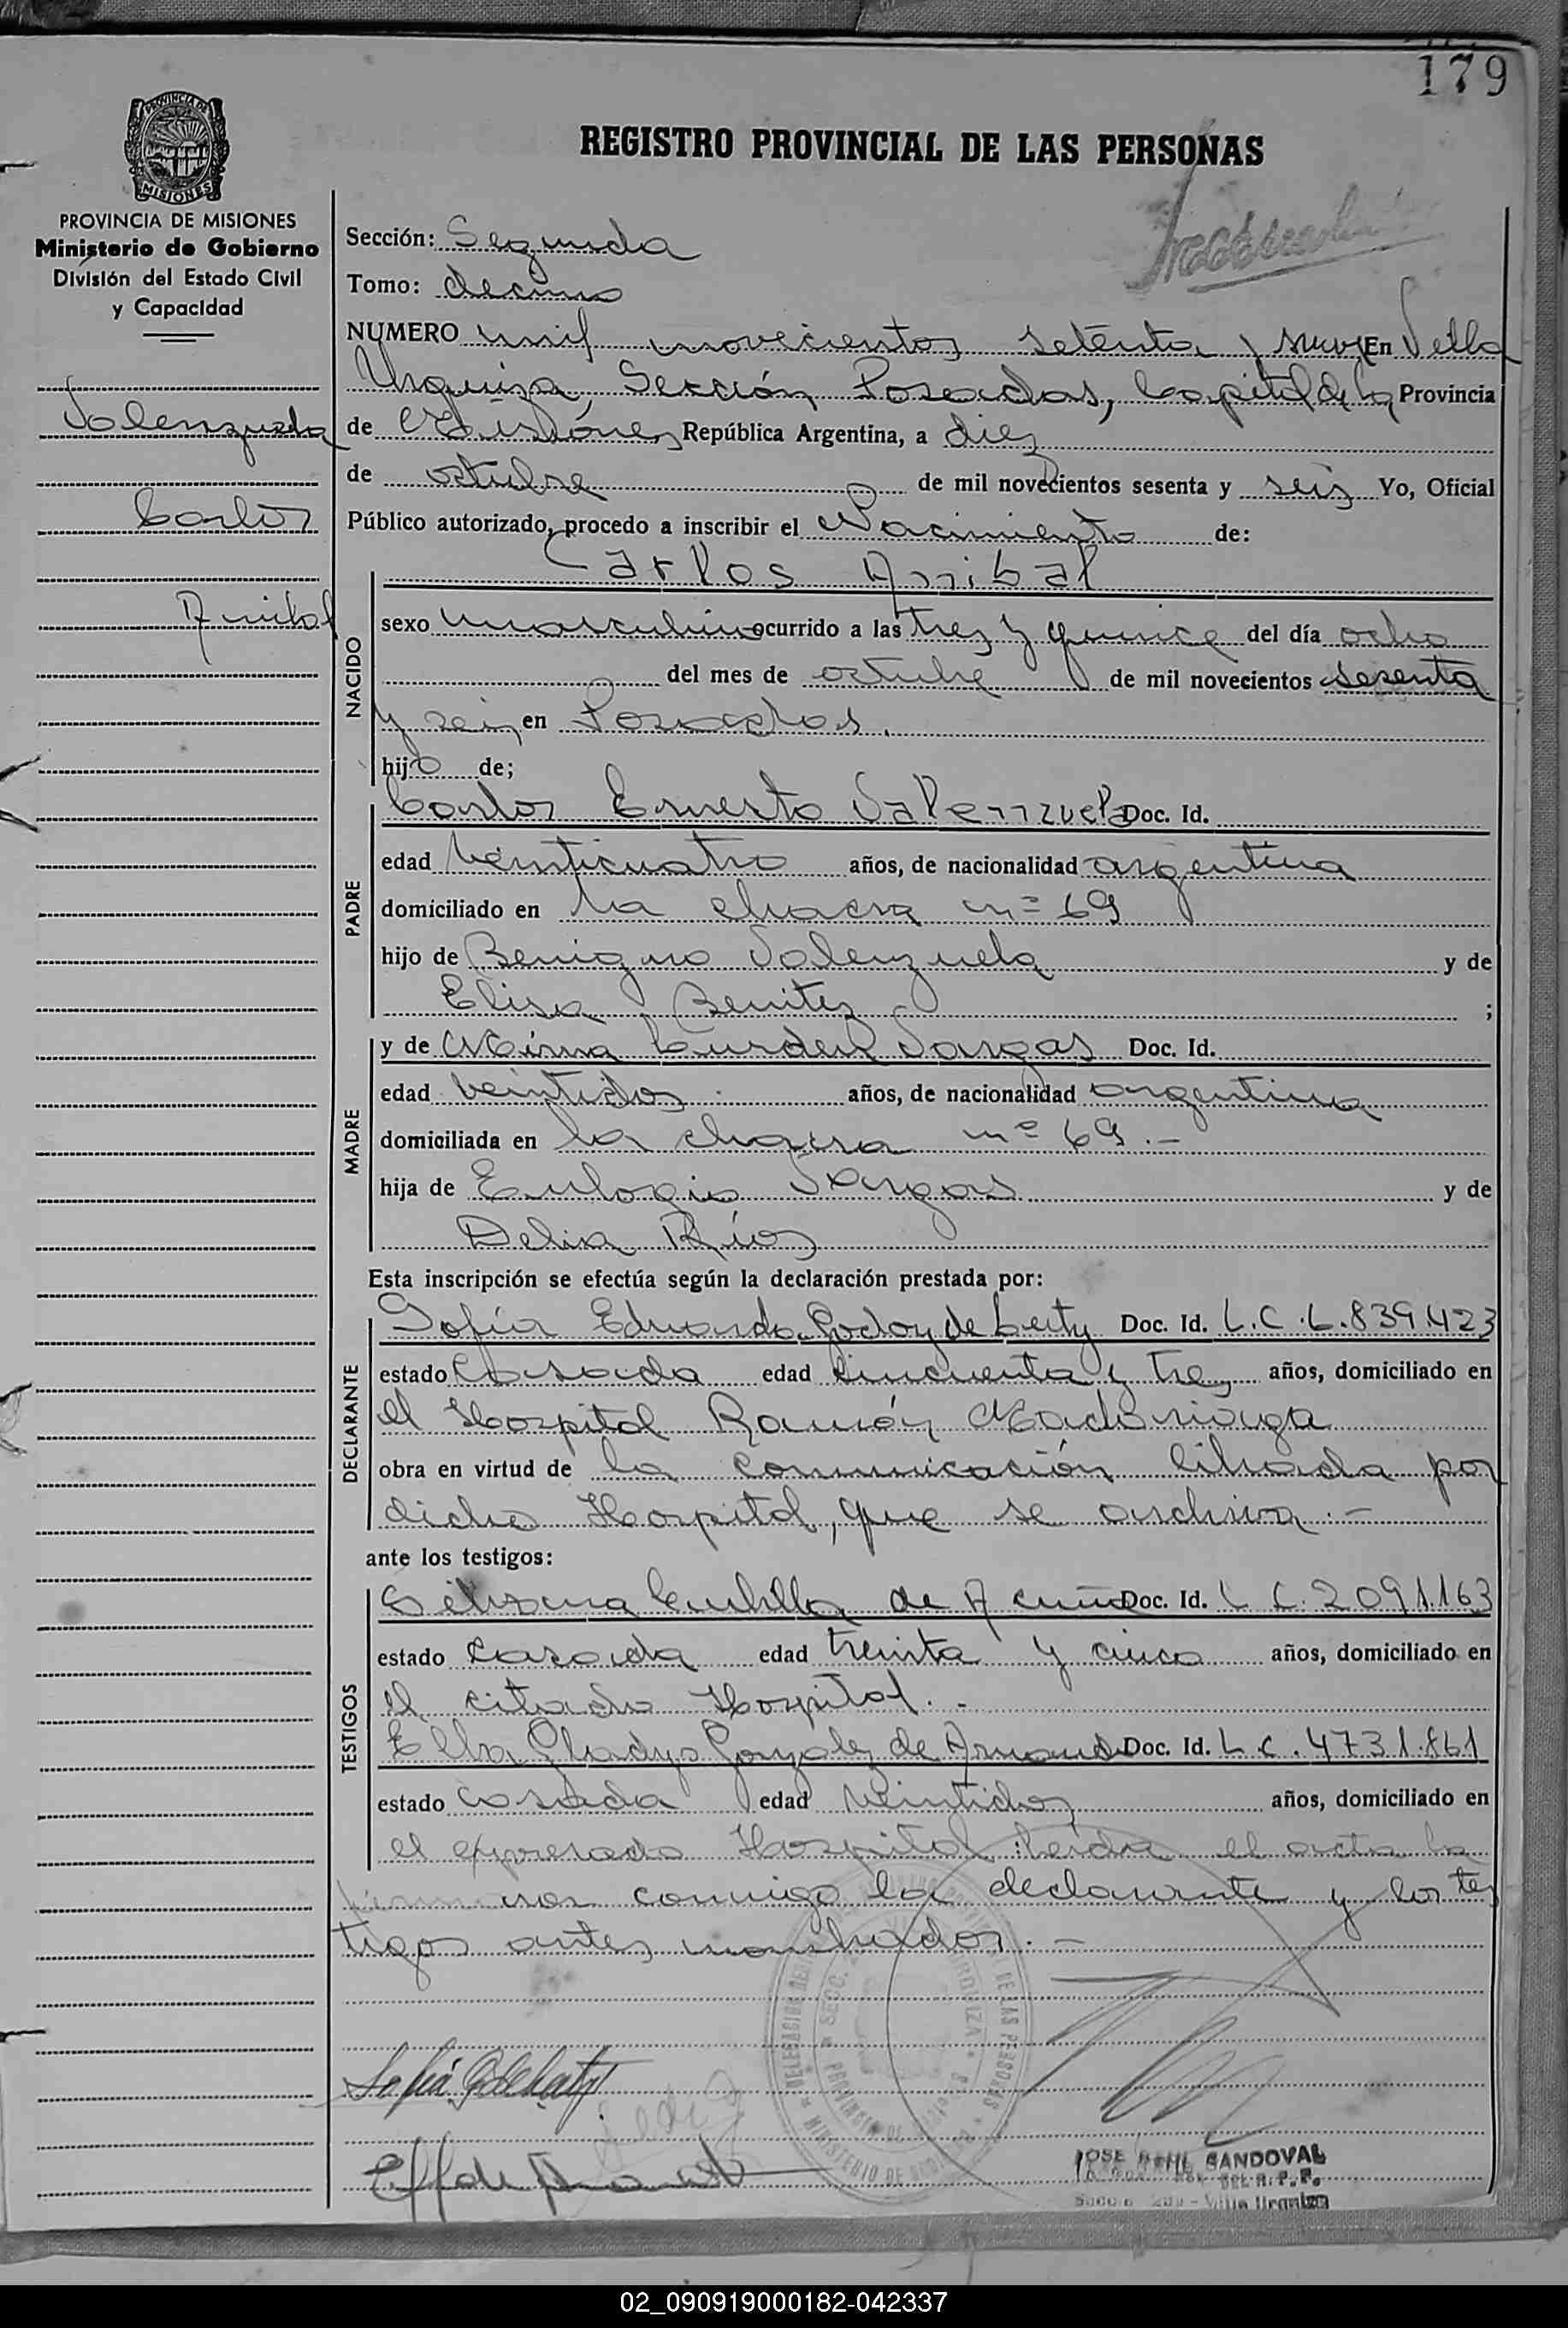 179
PROVINCIA DE
MISIONES
REGISTRO PROVINCIAL DE LAS PERSONAS
PROVINCIA DE MISIONES
Ministerio de Gobierno
División del Estado Civil
y Capacidad
Sección: Segunda
Tomo: decimo
NUMERO mil novecientos setenta y nueve En Villa
Urquiza, Sección Posadas, Capital de la Provincia
Valenzuela
de Misiones República Argentina, a diez
de octubre de mil novecientos sesenta y seis Yo, Oficial
Carlos
Público autorizado, procedo a inscribir el Nacimiento de:
Carlos Anibal
Anibal
NACIDO
sexo masculino ocurrido a las tres y quince del día ocho
del mes de octubre de mil novecientos sesenta
y seis en Posadas.
hijo de;
PADRE
Carlos Ernesto Valenzuela Doc. Id.
edad veinticuatro años, de nacionalidad argentina
domiciliado en la chacra nº 69
hijo de Benigno Valenzuela y de
Elisa Benitez ;
MADRE
y de Mirna Lurdes Vargas Doc. Id.
edad veintidos años, de nacionalidad argentina
domiciliada en la chacra nº 69.-
hija de Eulogio Vargas y de
Delia Ríos
Esta inscripción se efectúa según la declaración prestada por:
DECLARANTE
Sofía Eduarda Godoy de Doc. Id. L.C. 6.839.423
estado Casada edad cincuenta y tres años, domiciliado en
el Hospital Ramón Madariaga
obra en virtud de la comunicación librada por
dicho Hospital, que se archiva.-
ante los testigos:
TESTIGOS
de Acuña Doc. Id. L C. 2091.163
estado casada edad treinta y cinco años, domiciliado en
el citado Hospital.-
Elba Gladys Gonzalez de Doc. Id. L.C. 4731.861
estado casada edad veintidos años, domiciliado en
el expresado Hospital. Leida el acta la
conmigo la declarante y los tes
tigos antes nombrados.-
JOSE RAUL SANDOVAL
DEL R. P. P.
Villa Urquiza
02_090919000182-042337